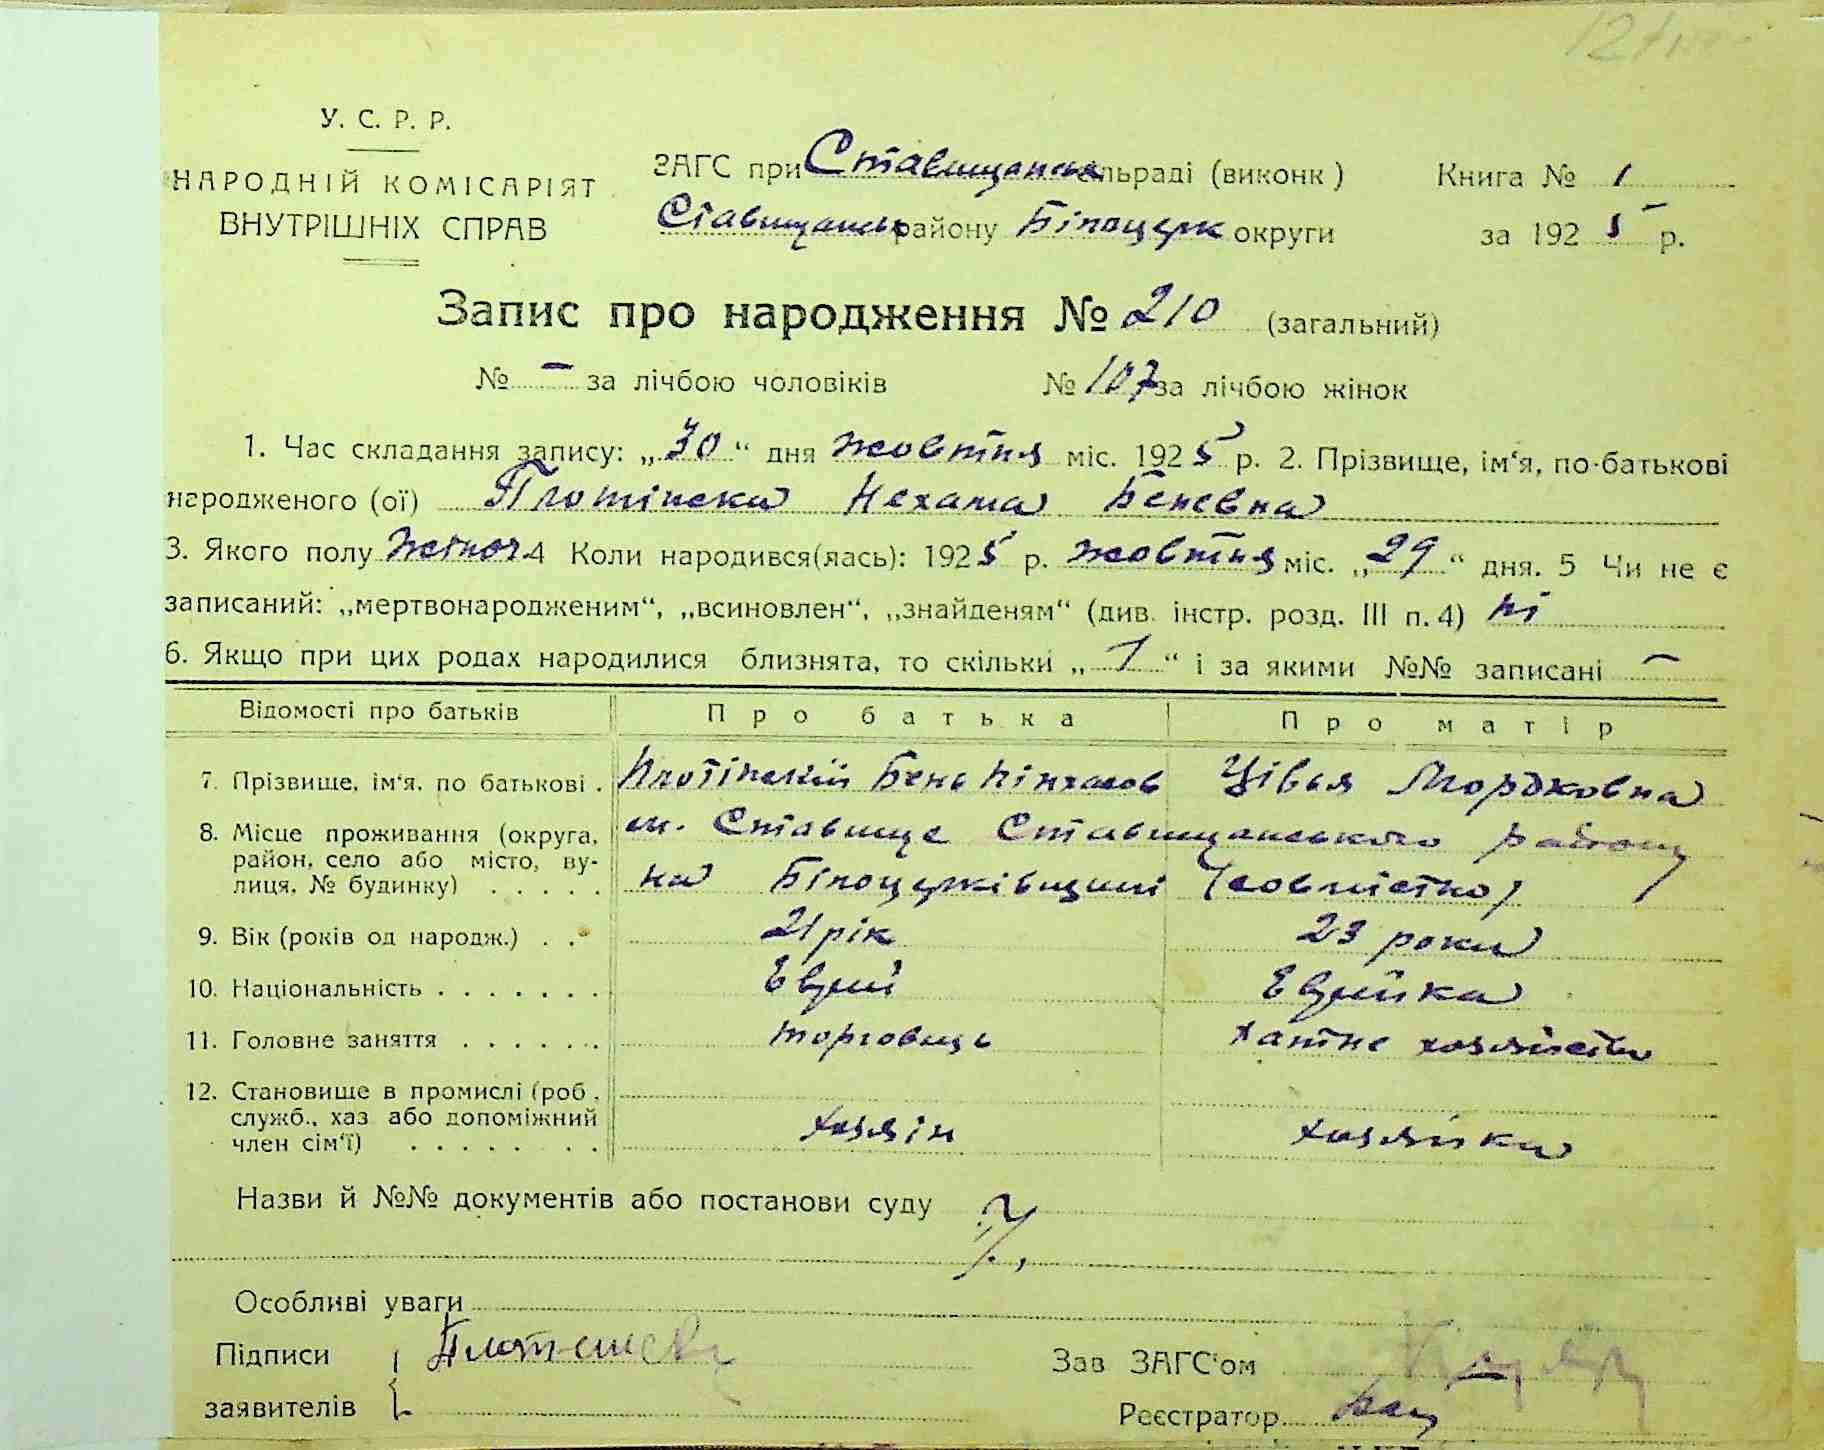 У. С. Р. Р.
НАРОДНІЙ КОМІСАРІЯТ
ВНУТРІШНІХ СПРАВ
ЗАГС при Ставищанськ сільраді (виконк)
Ставищанськ району Білоцерк округи
Книга № 1
за 1925 р.
Запис про народження № 210 (загальний)
№ — за лічбою чоловіків № 107 за лічбою жінок
1. Час складання запису: „30“ дня жовтня міс. 1925 р. 2. Прізвище, ім‘я, по-батькові
народженого (ої) Плотінска Нехама Беневна
3. Якого полу жіноч. 4 Коли народився(лась): 1925 р. жовтня міс. „29“ дня. 5 Чи не є
записаний: „мертвонародженим“, „всиновлен“, „знайденям“ (див. інстр. розд. III п. 4) ні
6. Якщо при цих родах народилися близнята, то скільки „1“ і за якими №№ записані —
Відомості про батьків Про батька Про матір
7. Прізвище, ім‘я, по батькові . Плотінский Бень Пінхасов Цівья Мордковна
8. Місце проживання (округа, м. Ставище Ставищанського району
район, село або місто, ву-
лиця, № будинку) . . . . . на Білоцерківщині (совместно)
9. Вік (років од народж.) . . 21 рік 23 роки
10. Національність . . . . . . . Еврей Еврейка
11. Головне заняття . . . . . . торговець хатне хозяйство
12. Становище в промислі (роб.
служб., хаз або допоміжний хозяін хозяйка
член сім‘ї) . . . . . . .
Назви й №№ документів або постанови суду
Особливі уваги
Підписи
заявителів
Зав ЗАГС‘ом
Реєстратор